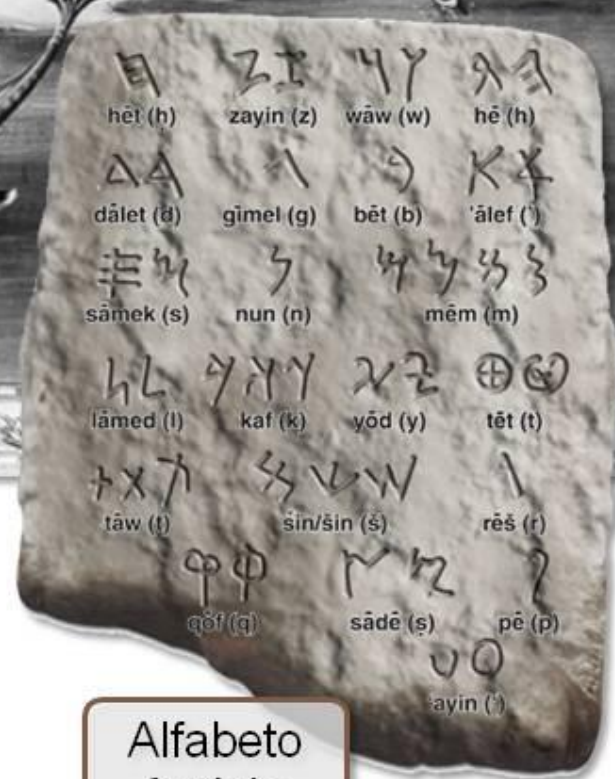 hēt (h) zayin (z) wāw (w) hē (h)
dālet (d) gīmel (g) bēt (b) 'ālef (')
sāmek (s) nun (n) mēm (m)
lāmed (l) kaf (k) yōd (y) tēt (t)
tāw (t) śin/šin (š) rēš (r)
qōf (q) sādē (ṣ) pē (p)
ayin (')
Alfabeto